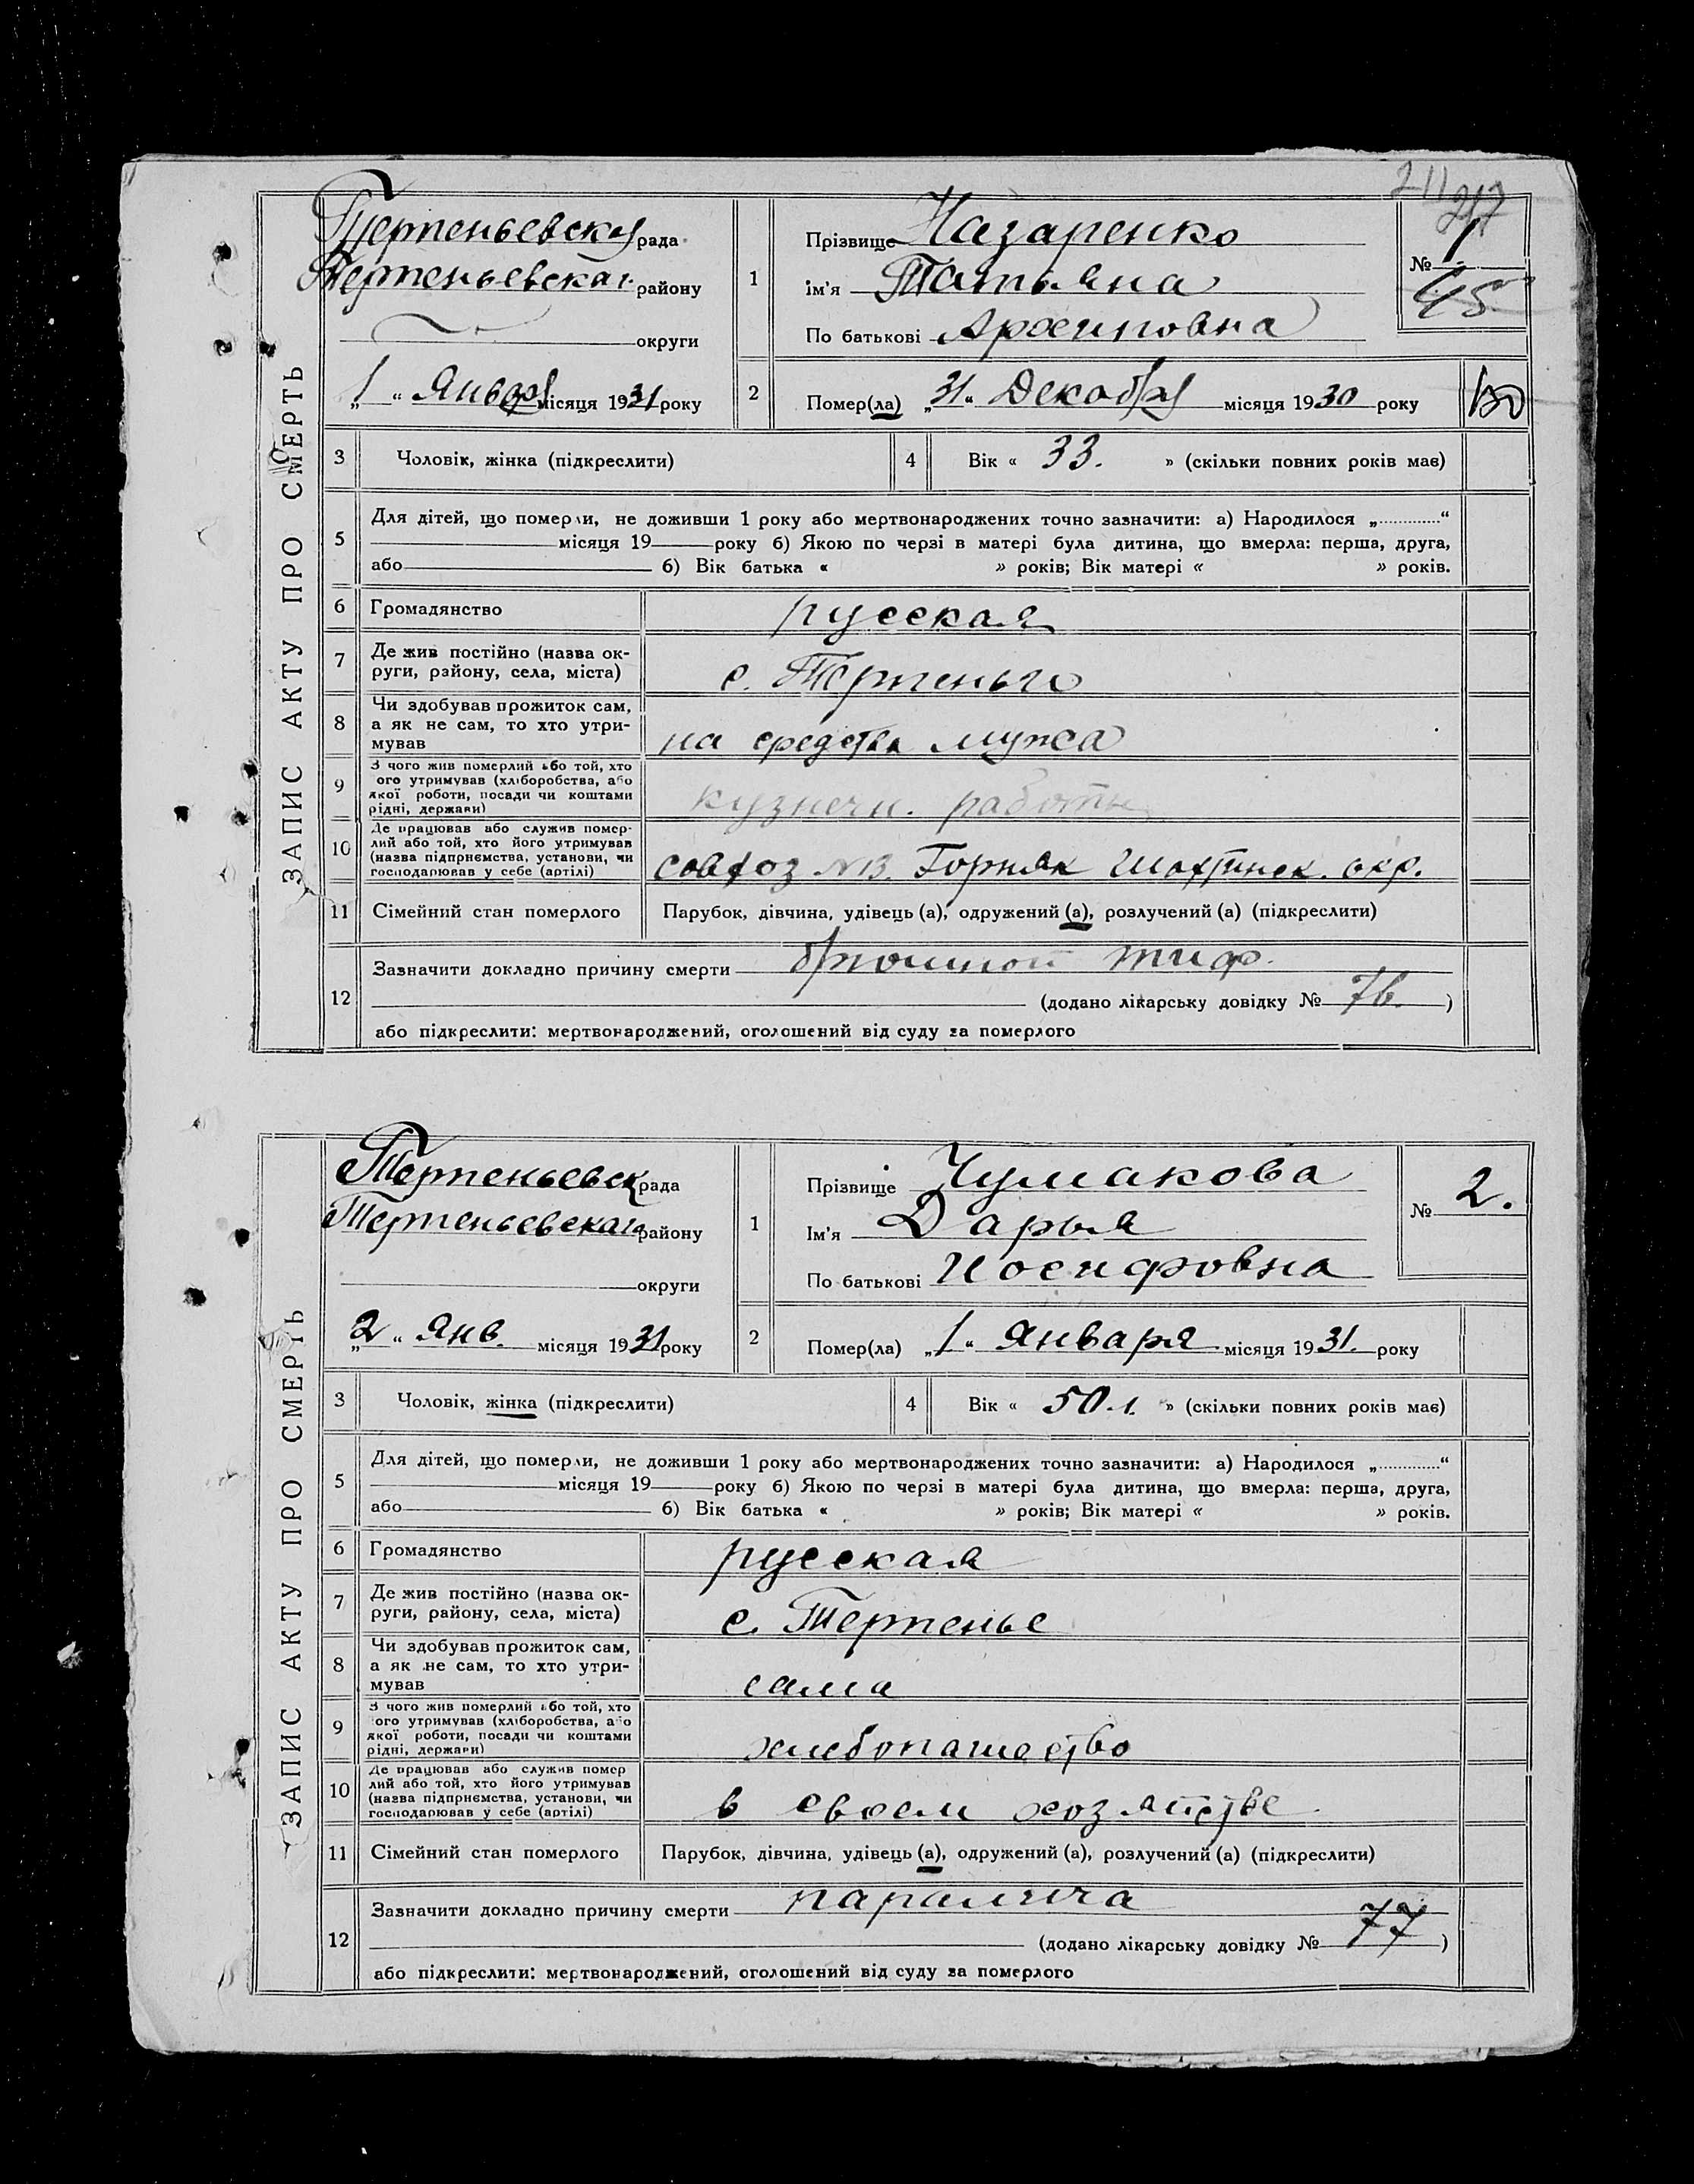 ЗАПИС АКТУ ПРО СМЕРТЬ
Терпеньевская рада
Терпеньевскаго району
округи
„1“ Января місяця 1931 року
1
Прізвище Назаренко
Ім'я Татьяна
По батькові Архиповна
№ 1
45
2
Помер(ла) „31“ Декабря місяця 1930 року
3 Чоловік, жінка (підкреслити)
4 Вік « 33. » (скільки повних років має)
5 Для дітей, що померли, не доживши 1 року або мертвонароджених точно зазначити: а) Народилося „............“
місяця 19 року б) Якою по черзі в матері була дитина, що вмерла: перша, друга,
або б) Вік батька « » років; Вік матері « » років.
6 Громадянство русская
7 Де жив постійно (назва ок-
руги, району, села, міста) с. Терпенье
8 Чи здобував прожиток сам,
а як не сам, то хто утри-
мував на средства мужа
9 З чого жив померлий або той, хто
ого утримував (хліборобства, або
якої роботи, посади чи коштами
рідні, держави) кузнечн. работы
10 Де працював або служив помер-
лий або той, хто його утримував
(назва підприємства, установи, чи
господарював у себе (артілі) совхоз №13. Горняк Шахтинск. окр.
11 Сімейний стан померлого Парубок, дівчина, удівець (а), одружений (а), розлучений (а) (підкреслити)
12 Зазначити докладно причину смерти брюшной тиф.
(додано лікарську довідку № 76. )
або підкреслити: мертвонароджений, оголошений від суду за померлого
ЗАПИС АКТУ ПРО СМЕРТЬ
Терпеньевск рада
Терпеньевскаго району
округи
„2“ Янв. місяця 1931 року
1
Прізвище Чумакова
Ім'я Дарья
По батькові Иосифовна
№ 2.
2
Помер(ла) „1“ Января місяця 1931. року
3 Чоловік, жінка (підкреслити)
4 Вік « 50 л. » (скільки повних років має)
5 Для дітей, що померли, не доживши 1 року або мертвонароджених точно зазначити: а) Народилося „............“
місяця 19 року б) Якою по черзі в матері була дитина, що вмерла: перша, друга,
або б) Вік батька « » років; Вік матері « » років.
6 Громадянство русская
7 Де жив постійно (назва ок-
руги, району, села, міста) с. Терпенье
8 Чи здобував прожиток сам,
а як не сам, то хто утри-
мував сама
9 З чого жив померлий або той, хто
ого утримував (хліборобства, або
якої роботи, посади чи коштами
рідні, держави) хлебопашество
10 Де працював або служив помер
лий або той, хто його утримував
(назва підприємства, установи, чи
господарював у себе (артілі) в своем хозяйстве
11 Сімейний стан померлого Парубок, дівчина, удівець (а), одружений (а), розлучений (а) (підкреслити)
12 Зазначити докладно причину смерти паралича
(додано лікарську довідку № 77 )
або підкреслити: мертвонароджений, оголошений від суду за померлого